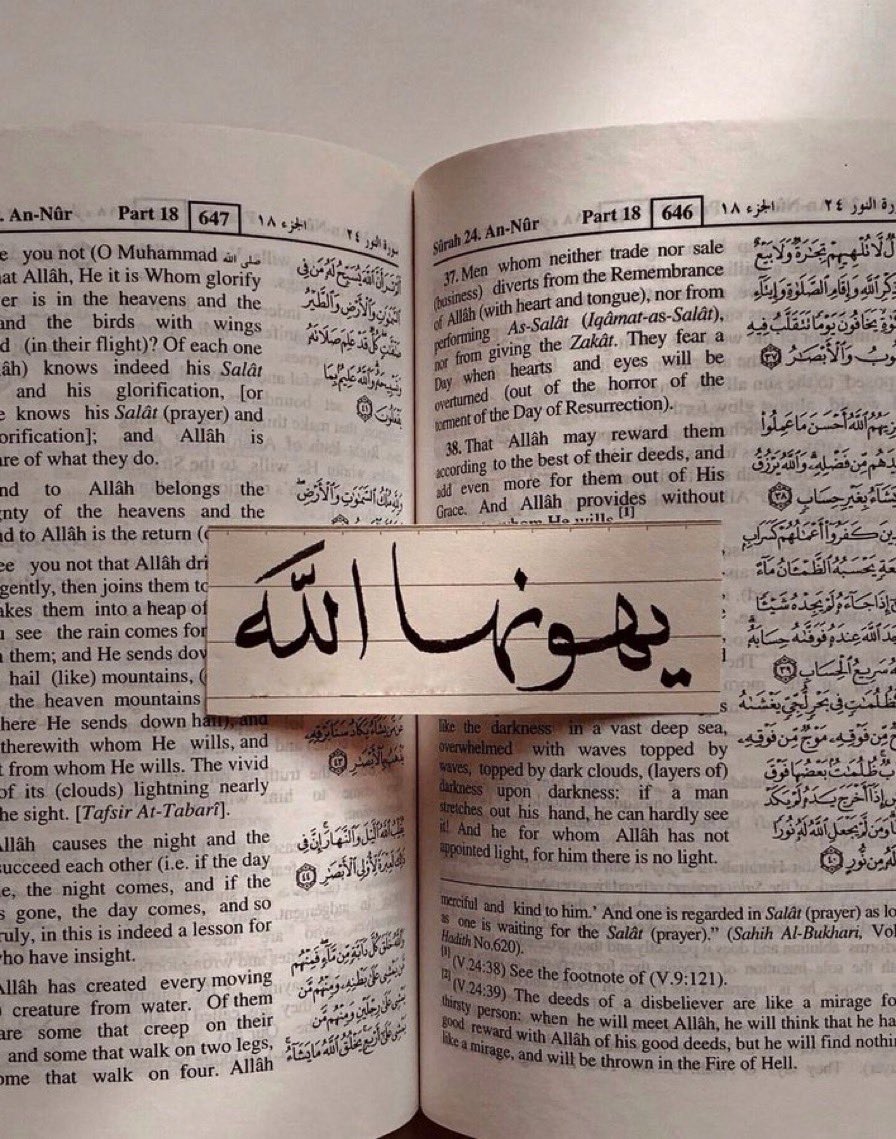 Sûrah 24. An-Nûr Part 18 646 الجزء ١٨ سورة النور ٢٤
37. Men whom neither trade nor sale
(business) diverts from the Remembrance
of Allâh (with heart and tongue), nor from
performing As-Salât (Iqâmat-as-Salât),
nor from giving the Zakât. They fear a
Day when hearts and eyes will be
overturned (out of the horror of the
torment of the Day of Resurrection).
38. That Allâh may reward them
according to the best of their deeds, and
add even more for them out of His
Grace. And Allâh provides without
whom He wills.[1]
like the darkness in a vast deep sea,
overwhelmed with waves topped by
waves, topped by dark clouds, (layers of)
darkness upon darkness: if a man
stretches out his hand, he can hardly see
it! And he for whom Allâh has not
appointed light, for him there is no light.
لَّا تُلْهِيهِمْ تِجَٰرَةٌ وَلَا بَيْعٌ
ذِكْرِ ٱللَّهِ وَإِقَامِ ٱلصَّلَوٰةِ وَإِيتَآءِ
يَخَافُونَ يَوْمًا تَتَقَلَّبُ فِيهِ
وَٱلْأَبْصَٰرُ ٣٧
ٱللَّهُ أَحْسَنَ مَا عَمِلُوا۟
مِّن فَضْلِهِۦ وَٱللَّهُ يَرْزُقُ
بِغَيْرِ حِسَابٍ ٣٨
كَفَرُوٓا۟ أَعْمَٰلُهُمْ كَسَرَابٍ
يَحْسَبُهُ ٱلظَّمْـَٔانُ مَآءً
إِذَا جَآءَهُۥ لَمْ يَجِدْهُ شَيْـًٔا
ٱللَّهَ عِندَهُۥ فَوَفَّىٰهُ حِسَابَهُۥ
سَرِيعُ ٱلْحِسَابِ ٣٩
فِى بَحْرٍ لُّجِّىٍّ يَغْشَىٰهُ
مِّن فَوْقِهِۦ مَوْجٌ مِّن فَوْقِهِۦ
ظُلُمَٰتٌۢ بَعْضُهَا فَوْقَ
إِذَآ أَخْرَجَ يَدَهُۥ لَمْ يَكَدْ
وَمَن لَّمْ يَجْعَلِ ٱللَّهُ لَهُۥ نُورًا
مِن نُّورٍ ٤٠
merciful and kind to him.' And one is regarded in Salât (prayer) as
as one is waiting for the Salât (prayer)." (Sahih Al-Bukhari,
Hadith No.620).
[1] (V.24:38) See the footnote of (V.9:121).
[2] (V.24:39) The deeds of a disbeliever are like a mirage
thirsty person: when he will meet Allâh, he will think that he
good reward with Allâh of his good deeds, but he will find
like a mirage, and will be thrown in the Fire of Hell.
يهونها الله
An-Nûr Part 18 647 الجزء ١٨ سورة النور ٢٤
you not (O Muhammad صلى الله
Allâh, He it is Whom glorify
is in the heavens and the
and the birds with wings
(in their flight)? Of each one
knows indeed his Salât
and his glorification, [or
knows his Salât (prayer) and
and Allâh is
of what they do.
to Allâh belongs the
of the heavens and the
to Allâh is the return
you not that Allâh
gently, then joins them
them into a heap of
see the rain comes
them; and He sends
hail (like) mountains,
the heaven mountains
He sends down hail), and
therewith whom He wills, and
from whom He wills. The vivid
of its (clouds) lightning nearly
the sight. [Tafsir At-Tabarî].
Allâh causes the night and the
succeed each other (i.e. if the day
the night comes, and if the
gone, the day comes, and so
in this is indeed a lesson for
who have insight.
Allâh has created every moving
creature from water. Of them
are some that creep on their
and some that walk on two legs,
that walk on four. Allâh
أَلَمْ تَرَ أَنَّ ٱللَّهَ يُسَبِّحُ لَهُۥ مَن فِى
ٱلسَّمَٰوَٰتِ وَٱلْأَرْضِ وَٱلطَّيْرُ
صَٰٓفَّٰتٍ كُلٌّ قَدْ عَلِمَ صَلَاتَهُۥ
وَتَسْبِيحَهُۥ وَٱللَّهُ عَلِيمٌۢ بِمَا
يَفْعَلُونَ ٤١
وَلِلَّهِ مُلْكُ ٱلسَّمَٰوَٰتِ وَٱلْأَرْضِ
عَن مَّن يَشَآءُ يَكَادُ سَنَا بَرْقِهِۦ
يَذْهَبُ بِٱلْأَبْصَٰرِ ٤٣
يُقَلِّبُ ٱللَّهُ ٱلَّيْلَ وَٱلنَّهَارَ إِنَّ فِى
ذَٰلِكَ لَعِبْرَةً لِّأُو۟لِى ٱلْأَبْصَٰرِ ٤٤
وَٱللَّهُ خَلَقَ كُلَّ دَآبَّةٍ مِّن مَّآءٍ فَمِنْهُم
مَّن يَمْشِى عَلَىٰ بَطْنِهِۦ وَمِنْهُم مَّن
يَمْشِى عَلَىٰ رِجْلَيْنِ وَمِنْهُم مَّن
يَمْشِى عَلَىٰٓ أَرْبَعٍ يَخْلُقُ ٱللَّهُ مَا يَشَآءُ